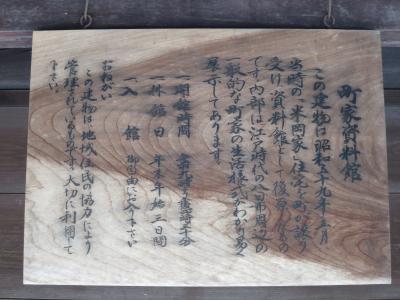 町家資料館
この建物は昭和五十九年三月
当時の「米岡家」住宅を町が譲り
受け「資料館」として復原したもの
です。内部は江戸時代の八日市周辺の
一般的な町家の生活様式がわかり易く
展示してあります。
一、開館時間　午前九時～午後四時三十分
一、休館日　年末年始三日間
一、入館　御自由にお入り下さい
おねがい
この建物は地域住民の協力により
管理されているものです。大切に利用して
下さい。